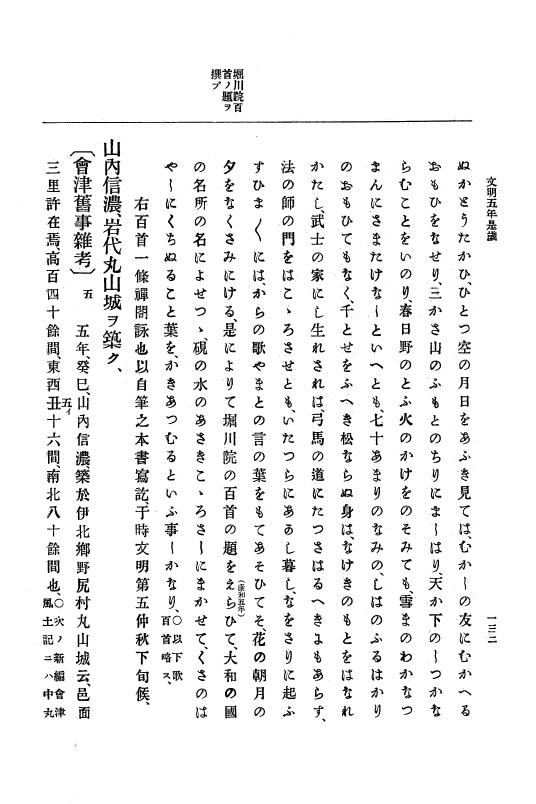 文明五年是歳
一三二
堀川院百
首ノ題ヲ
撰ブ
ぬかとうたかひ、ひとつ空の月日をあふき見ては、むかしの友にむかへる
おもひをなせり、三かさ山のふもとのちりにましはり、天か下のしつかな
らむことをいのり、春日野のとふ火のかけをのそみても、雪まのわかなつ
まんにさまたけなしといへとも、七十あまりのなみの、しはのふるはかり
のおもひてもなく、千とせをふへき松ならぬ身は、なけきのもとをはなれ
かたし、武士の家にし生れされは、弓馬の道にたつさはるへきよもあらす、
法の師の門をはこゝろさせとも、いたつらにあかし暮し、なをさりに起ふ
すひま〳〵には、からの歌やまとの言の葉をもてあそひてそ、花の朝月の
夕をなくさみにける、是によりて堀川院の百首の題をえらひて、大和の國
(康和五年)
の名所の名によせつゝ硯の水のあさきこゝろさしにまかせて、くさのは
やしにくちぬること葉を、かきあつむるといふ事しかなり、○以下歌百首略ス、
右百首一條禪閤詠也以自筆之本書寫訖、于時文明第五仲秋下旬候、
山內信濃、岩代丸山城ヲ築ク、
〔會津舊事雜考〕五 五年、癸巳、山內信濃、築於伊北鄕野尻村丸山城云、邑面
三里許在焉、高百四十餘間、東西丑五イ十六間、南北八十餘間也、○次ノ新編會津風土記ニハ中丸